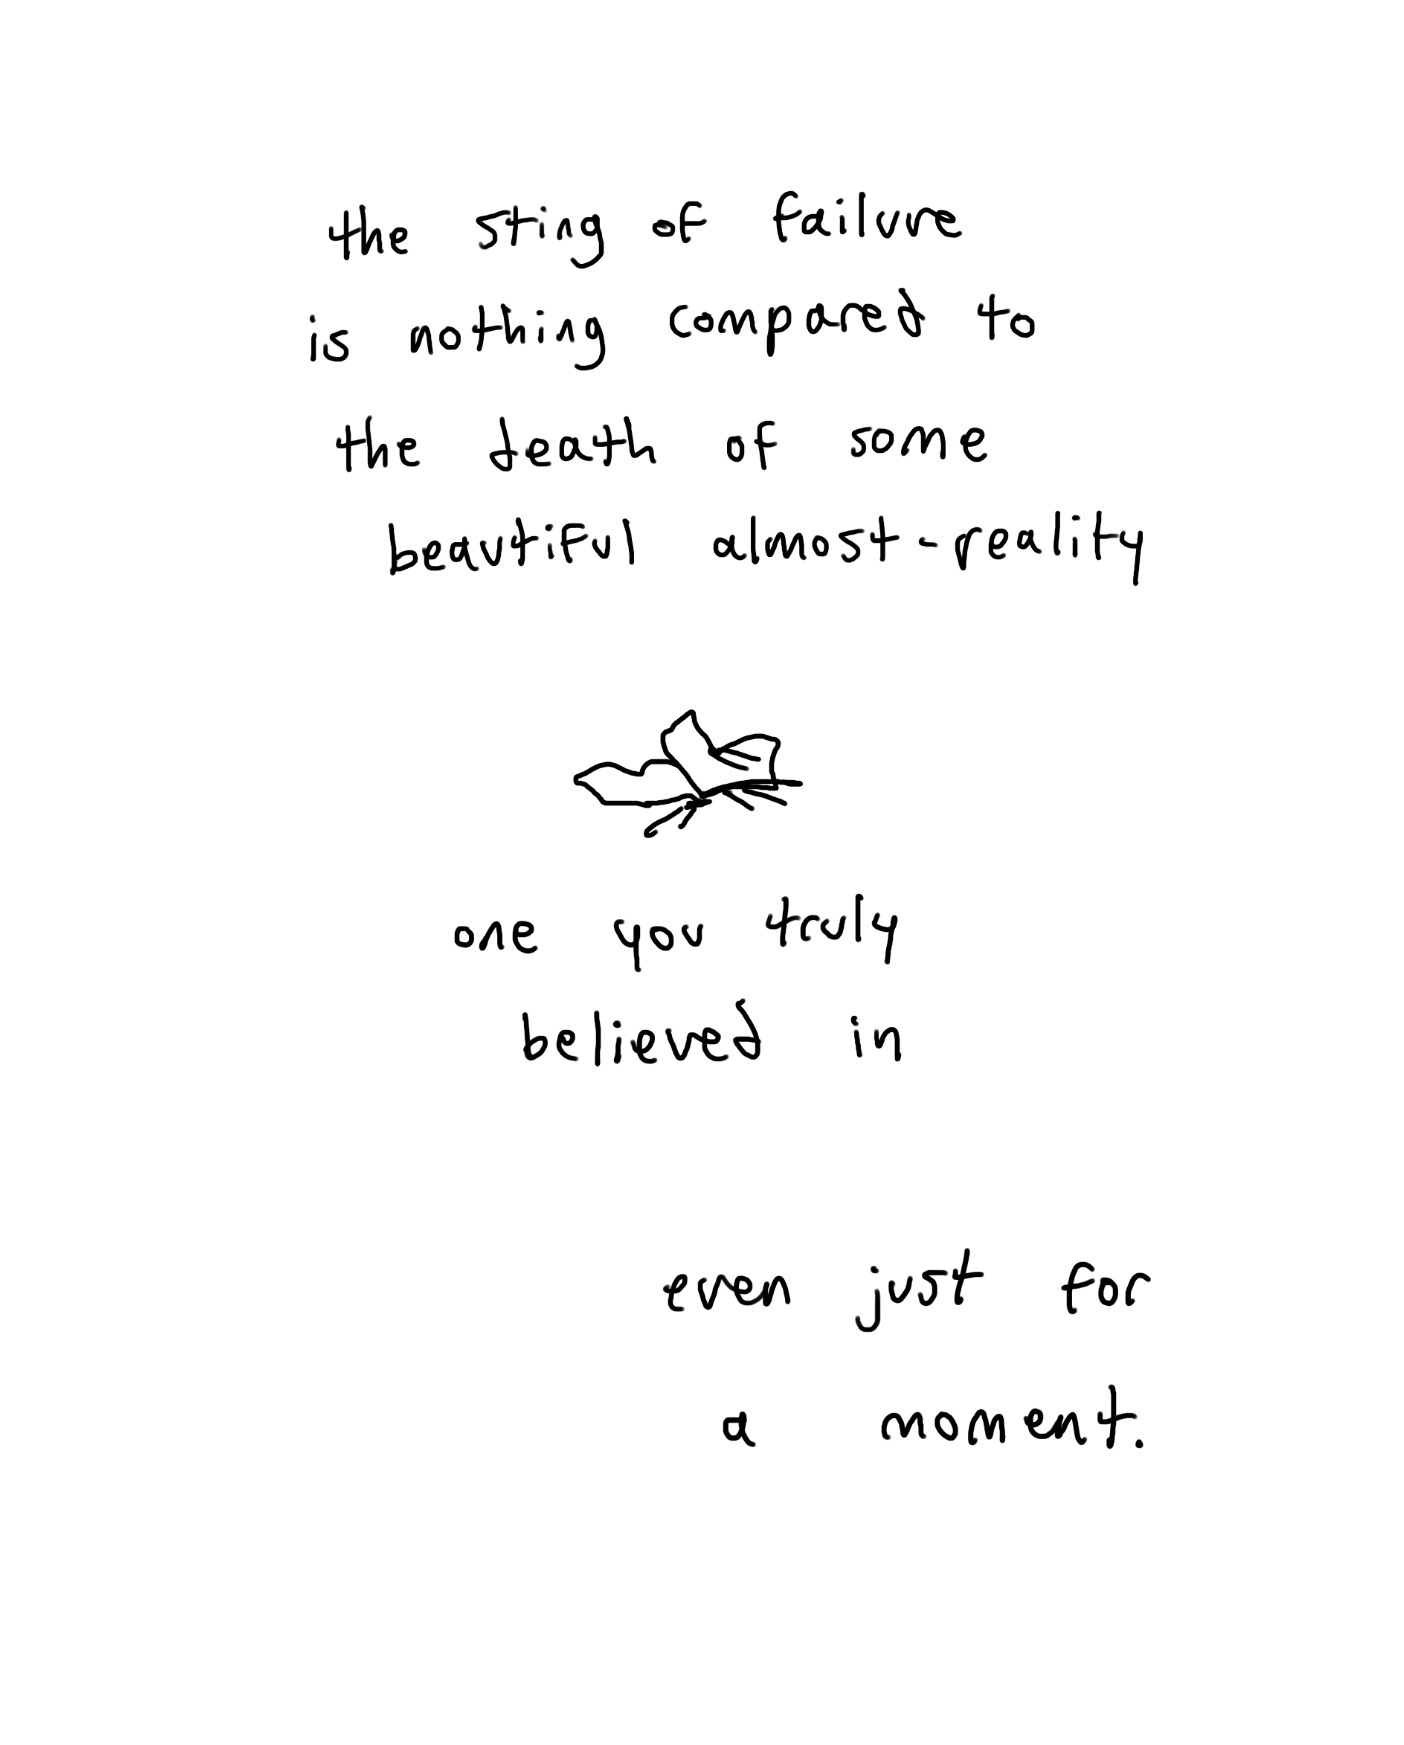 the sting of failure
is nothing compared to
the death of some
beautiful almost-reality
one you truly
believed in
even just for
a moment.